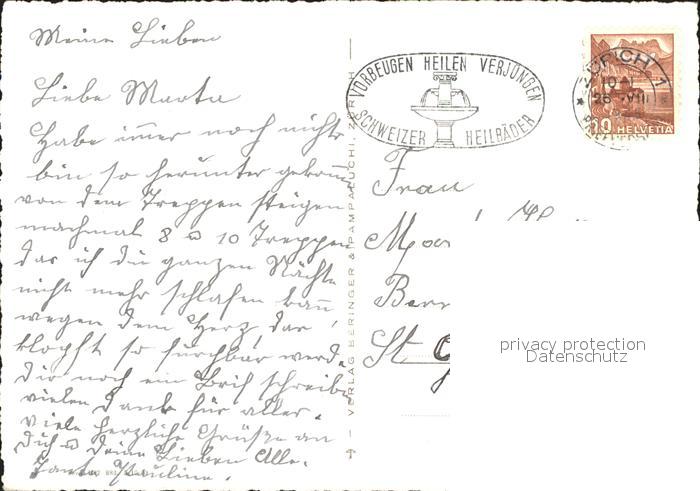 Meine Lieben
Liebe Marta
Habe immer noch nichts
bin so herunter gekom̄
von dem Treppen steigen
machmal 8 u 10 Treppen
das ich die ganzen Nächte
nicht mehr schlafen kan̄
wegen dem Herz, das
klopft so furchbar werde
Dir noch ein Brif schreiben
vielen Dank für alles.
viele herzliche Grüße an
Dich u Deine Lieben Alle.
Tante Pauline.
VERLAG BERINGER & PAMPALUCHI, ZÜRICH
VORBEUGEN HEILEN VERJÜNGEN
SCHWEIZER HEILBÄDER
ZÜRICH 1
26. VIII
10 HELVETIA
Frau
St
privacy protection
Datenschutz